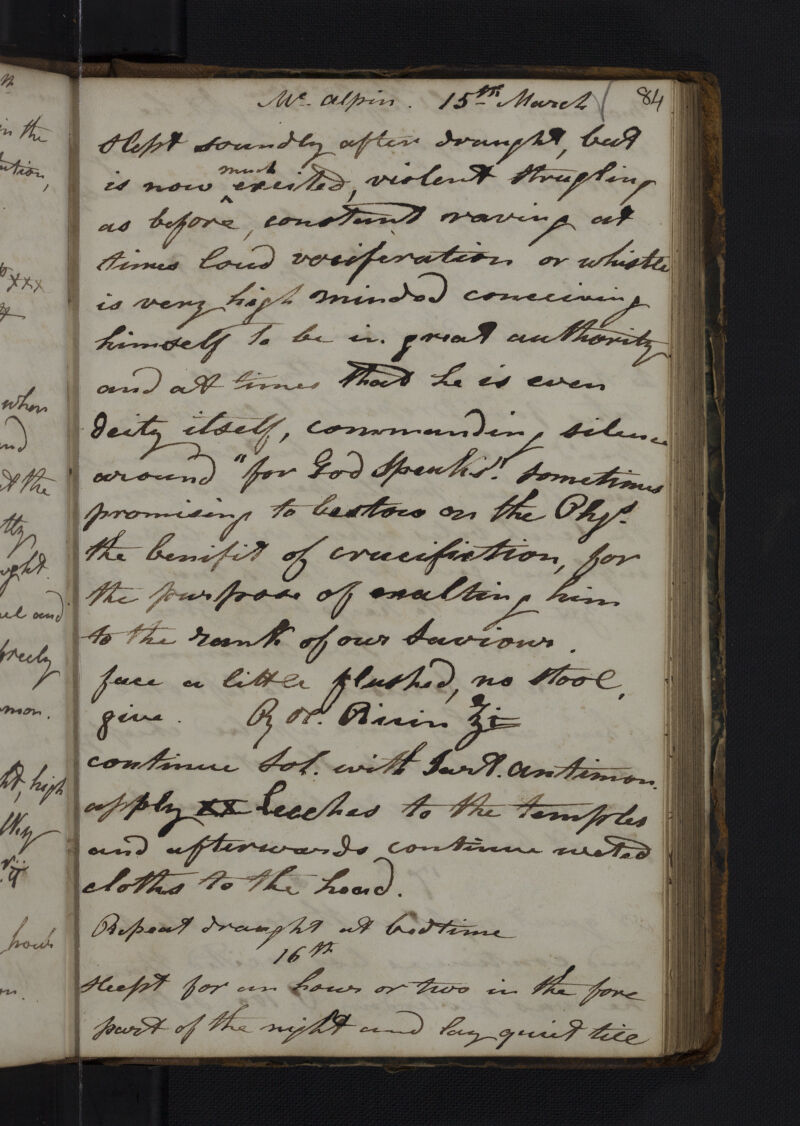 Mc. alpin. 15th March 84
slept soundly after draught, but
is now much excited, violent strugling
as before, constant raving at
times loud vociferation or whistle
is very high minded conceiving
himself to be in great authority
and at times that he is even
deity itself, commanding silence
around "for God speaks". sometimes
promising to bestow on the Phys.
the benifit of crucifiction, for
the purpose of exalting him
to the rank of our Saviour.
face a little flushed, no stool,
give. ℞ Ol. Ricin ℥i
continue Sol. with Tart. antimon.
apply xx Leeches to the temples
and afterwards continue weted
cloths to the head.
Repeat draught at bedtime
16th
slept for an hour or two in the fore
part of the night and lay quiet till
in the
xxx
when
nd
at the
ght.
and
freely
mon.
high
hour